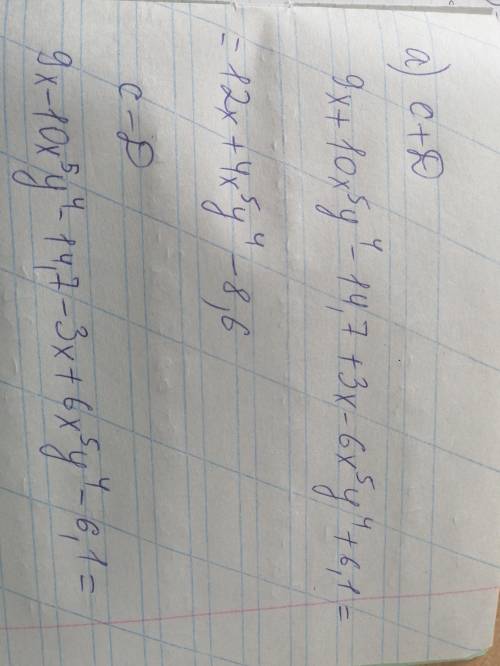 а) C+D
9x+10x⁵y⁴-14,7+3x-6x⁵y⁴+6,1=
=12x+4x⁵y⁴-8,6
C-D
9x-10x⁵y⁴-14,7-3x+6x⁵y⁴-6,1=